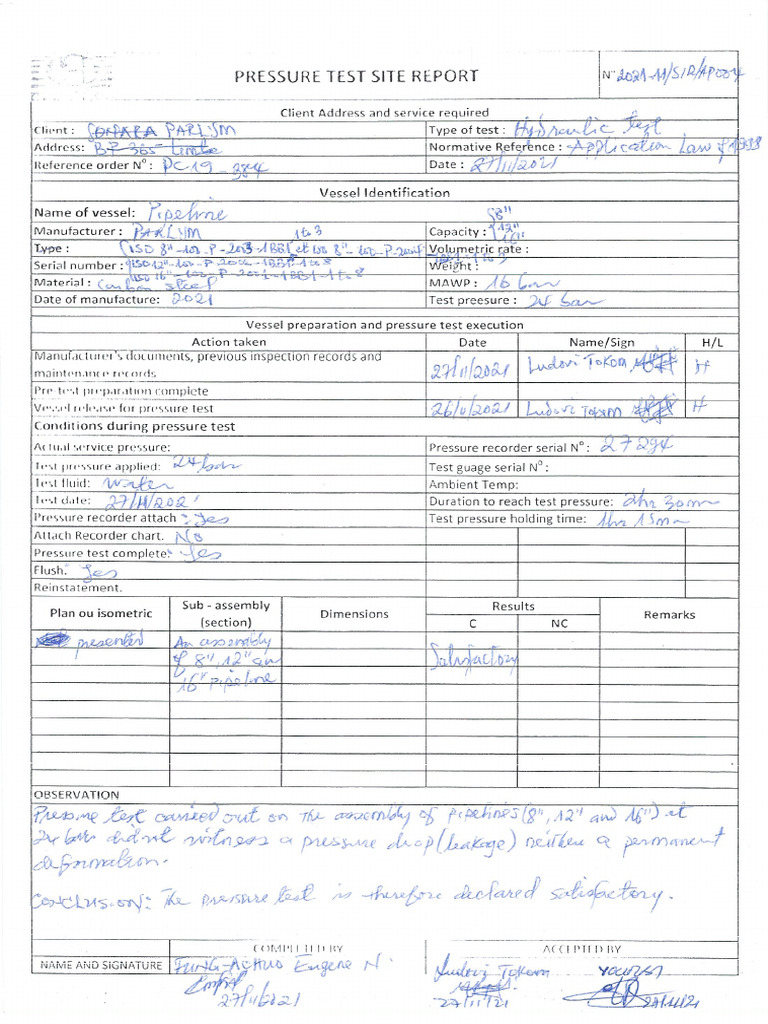 PRESSURE TEST SITE REPORT
N° 2021-11/SIR/AP004
Client Address and service required
Client : SONARA PARLYM
Type of test : Hydraulic test
Address: BP 365 Limbe
Normative Reference : Application Law of 1998
Reference order N° : PC19_384
Date : 27/11/2021
Vessel Identification
Name of vessel: Pipeline
Manufacturer : PARLYM
1 to 3
Capacity : 8" 12" 16"
Type : ISO 8"-100-P-2003-1BB1 et ISO 8"-100-P-
Volumetric rate :
Serial number : ISO 12"-100-P- -1BB1-1 to 8
Weight :
ISO 16"-100-P- -1BB1-1 to 8
Material : Carbon steel
MAWP : 16 bar
Date of manufacture: 2021
Test preesure : 24 bar
Vessel preparation and pressure test execution
Action taken Date Name/Sign H/L
Manufacturer's documents, previous inspection records and
maintenance records 27/11/2021 Ludovi TOKAM H
Pre-test preparation complete
Vessel release for pressure test 26/11/2021 Ludovi Tokam H
Conditions during pressure test
Actual service pressure:
Pressure recorder serial N° : 27294
Test pressure applied: 24 bar
Test guage serial N° :
Test fluid: water
Ambient Temp:
Test date: 27/11/2021
Duration to reach test pressure: 2hr 30mn
Pressure recorder attach : Yes
Test pressure holding time: 1hr 15mn
Attach Recorder chart. No
Pressure test complete: Yes
Flush. Yes
Reinstatement.
Plan ou isometric Sub - assembly (section) Dimensions Results Remarks
C NC
presented An assembly
of 8", 12" an Satisfactory
16" pipeline
OBSERVATION
Pressure test carried out on the assembly of pipelines (8", 12" and 16") at
24 bar didn't witness a pressure drop (leakage) neither a permanent
deformation.
CONCLUSION: The pressure test is therefore declared satisfactory.
COMPLETED BY ACCEPTED BY
NAME AND SIGNATURE FUNG-ACHUO Eugene N. Ludovi Tokam
27/11/2021 27/11/21 27/11/21